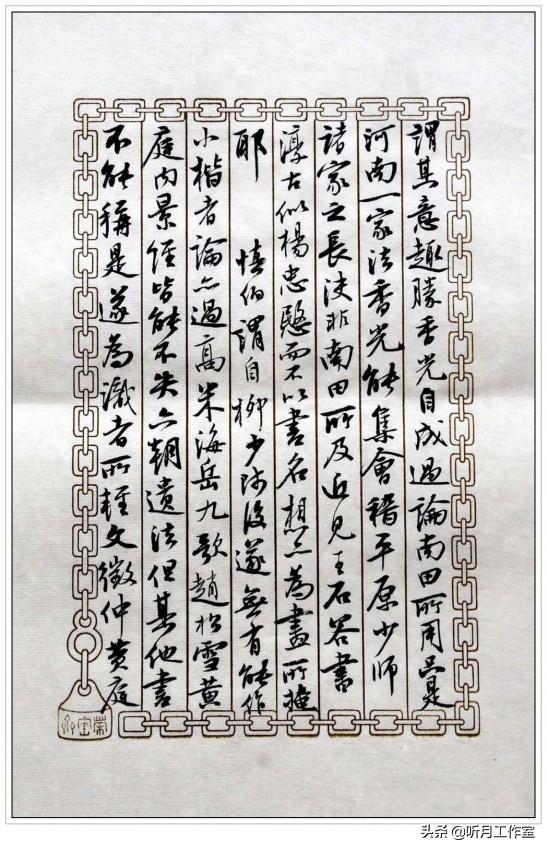 謂其意趣勝香光自成過論南田所用只是
河南一家法香光能集會稽平原少師
諸家之長決非南田所及近見王石谷書
淳古似楊忠愍而不以書名想亦為畫所掩
耶 慎伯謂自柳少師後遂無有能作
小楷者論亦過高米海岳九歌趙松雪黃
庭內景經皆能不失六朝遺法但其他書
不能稱是遂為識者所輕文徵仲黃庭
榮寶
头条 @听月工作室